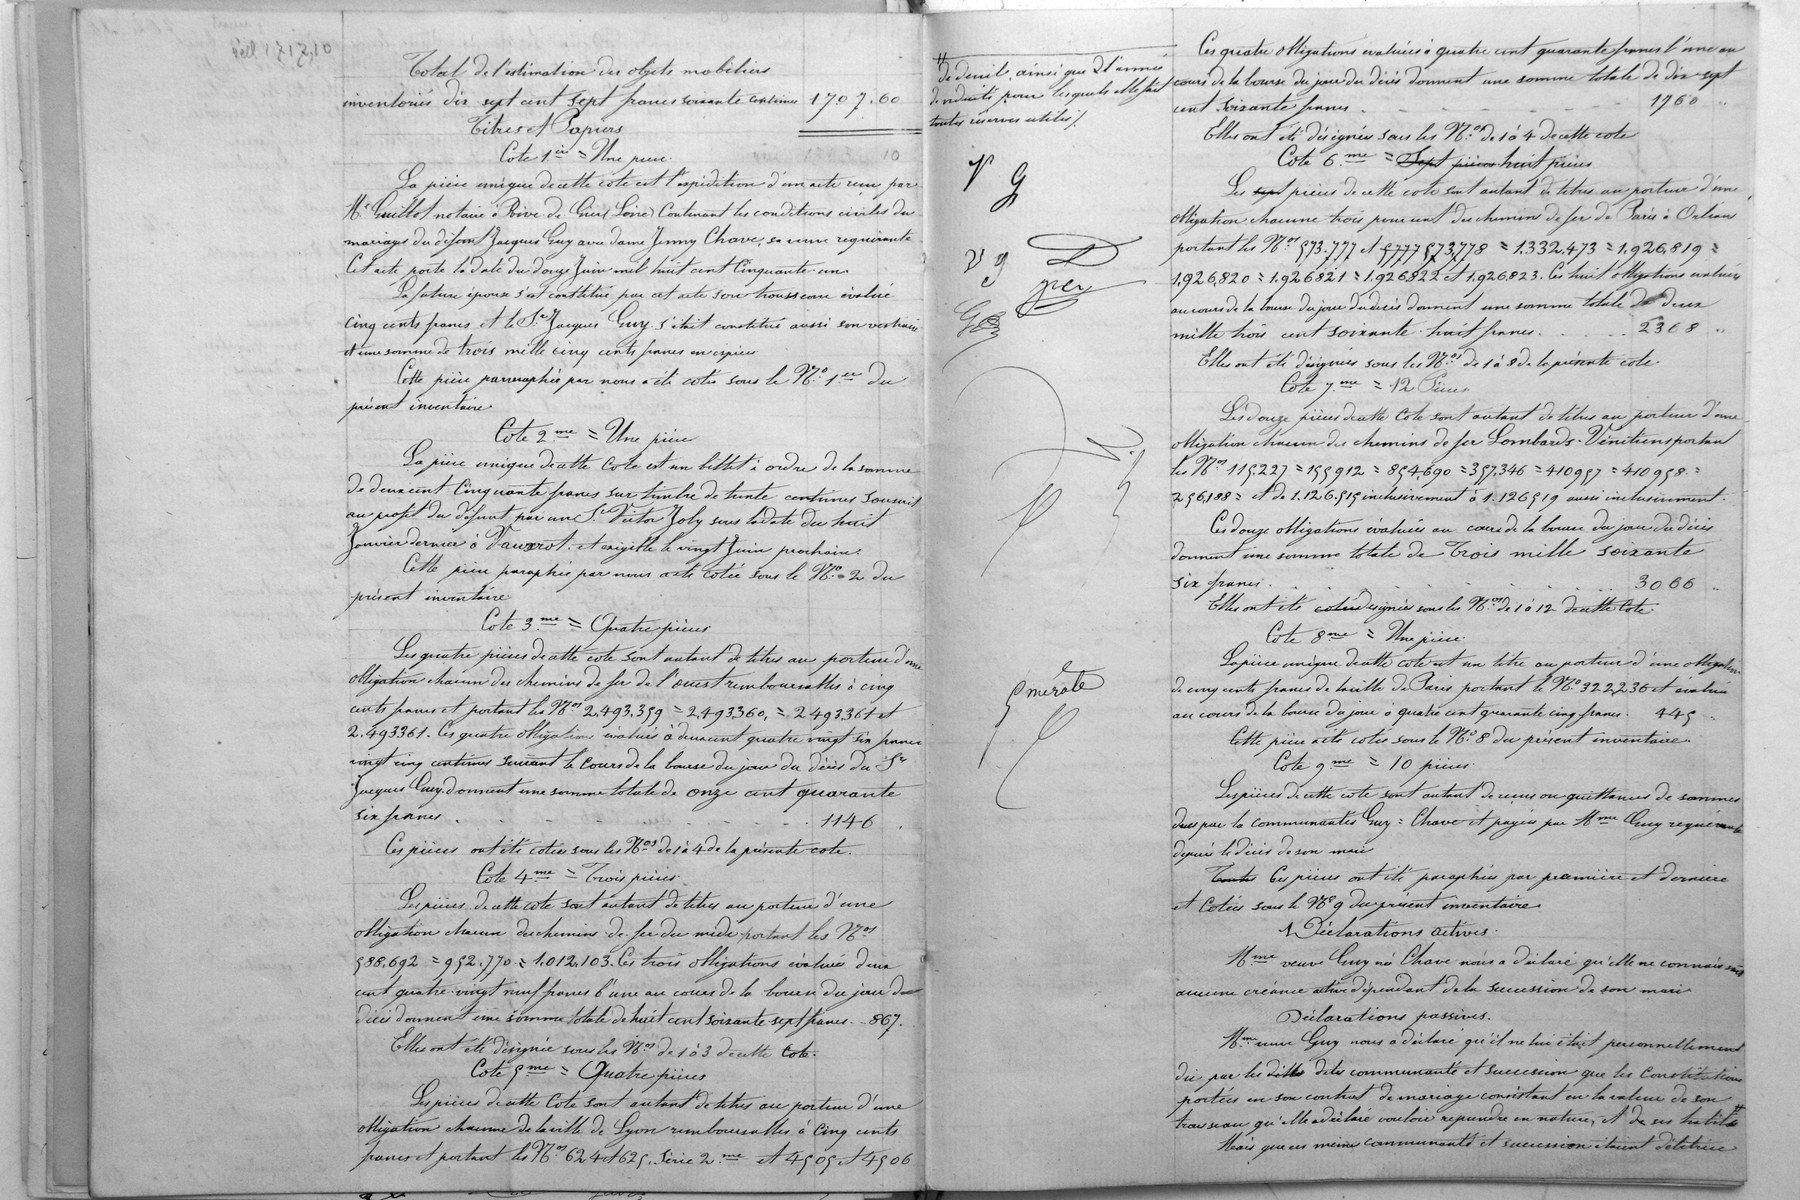 Total de l'estimation des objets mobiliers
inventoriés dix sept cent sept francs soixante centimes 1707.60
Titres et Papiers
Cote 1ère = Une pièce.
La pièce unique de cette cote est l'expédition d'un acte reçu par
Me Guillot notaire à Rive de Gier (Loire) contenant les conditions civiles du
mariage du défunt Jacques Guy avec dame Jenny Chave, sa veuve requérante
Cet acte porte la date du douze Juin mil huit cent cinquante un.
La future épouse s'est constitué par cet acte son trousseau évalué
cinq cents francs et le Sr Jacques Guy s'était constitué aussi son vestiaire
et une somme de trois mille cinq cents francs en espèces.
Cette pièce parraraphée par nous a été cotée sous le No 1er du
présent inventaire
Cote 2me = Une pièce
La pièce unique de cette Cote est un billet à ordre de la somme
de deux cent cinquante francs sur timbre de trente centimes souscrit
au profit du défunt par un Sr Victor Joly sous la date du huit
Janvier dernier à et exigible le vingt Juin prochain.
Cette pièce paraphée par nous a été cotée sous le No 2 du
présent inventaire
Cote 3me = Quatre pièces
Les quatre pièces de cette cote sont autant de titres au porteur d'une
obligation chacun des chemins de fer de l'ouest remboursables à cinq
cents francs et portant les Nos 2,493,359 = 2,493,360, = 2493,361 et
2.493361. Ces quatre obligations évaluées à deux cent quatre vingt six francs
vingt cinq centimes suivant le cours de la bourse du jour du décès du Sr
Jacques Guy, donnent une somme totale de onze cent quarante
six francs . . . . . . 1146 .
Ces pièces ont été cotées sous les Nos de 1 à 4 de la présente cote.
Cote 4me = Trois pièces.
Les pièces de cette cote sont autant de titres au porteur d'une
obligation chacun des chemins de fer du midi portant les Nos
588,692 = 952.770 = 1.012,103. Ces trois obligations évaluées deux
cent quatre-vingt neuf francs l'une au cours de la bourse du jour du
décès donnent une somme totale de huit cent soixante sept francs .. 867.
Elles ont été désignée sous les Nos de 1 à 3 de cette Cote.
Cote 5me = Quatre pièces
Les pièces de cette Cote sont autant de titres au porteur d'une
obligation chacune de la ville de Lyon remboursables à cinq cents
francs et portant les Nos 624 et 625, série 2me et 4505 et 4506
de deuil, ainsi que de l'année
de viduité pour lesquels elle fait
toutes réserves utiles/.
V G
V g
Ces quatre obligations évaluées à quatre cent quarante francs l'une au
cours de la bourse du jour du décès donnent une somme totale de dix sept
cent soixante francs . . . . . 1760 "
Elles ont été désignées sous les Nos de 1 à 4 de cette cote
Cote 6me = Sept pièces huit pièces
Les sept pièces de cette cote sont autant de titres au porteur d'une
obligation chacune trois pour cent du chemin de fer de Paris à Orléans
portant les Nos 573.777 et 5777 573,778 = 1.332,473 = 1.926,819 =
1,926,820 = 1.926821 = 1.926,822 et 1.926823. Ces huit obligations évaluées
au cours de la bourse du jour du décès donnent une somme totale de deux
mille trois cent soixante huit francs . . . . 2368 "
Elles ont été désignées sous les Nos de 1 à 8 de la présente cote.
Cote 7me = 12 Pièces
Les douze pièces de cette Cote sont autant de titres au porteur d'une
obligation chacun des chemins de fer Lombards-Vénitiens portant
les Nos 115,227 = 155912 = 854,690 = 357,346 = 410957 = 410958 =
256,188 = et de 1.126.515 inclusivement à 1.126519 aussi inclusivement.
Ces douze obligations évaluées au cours de la bourse du jour du décès
donnent une somme totale de Trois mille soixante
six francs. . . . . 3066 "
Elles ont été cotées désignées sous les Nos de 1 à 12 de cette Cote.
Cote 8me = Une pièce.
La pièce unique de cette cote est un titre au porteur d'une obligation
de cinq cents francs de la ville de Paris portant le No 322,236 et évaluée
au cours de la bourse du jour à quatre cent quarante cinq francs. 445 "
Cette pièce a été cotée sous le No 8 du présent inventaire.
Cote 9me = 10 pièces.
Les pièces de cette cote sont autant de reçus ou quittances de sommes
dues par la communauté Guy = Chave et payées par Mme Guy requérante
depuis le décès de son mari
Toutes Ces pièces ont été paraphées par première et dernière
et cotées sous le No 9 du présent inventaire.
Déclarations actives.
Mme veuve Guy née Chave nous a déclaré qu'elle ne connaissait
aucune créance active dépendant de la succession de son mari
Déclarations passives.
Mme veuve Guy nous a déclaré qu'il ne lui était personnellement
dû par les dettes dites communauté et succession que les constitutions
portées en son contrat de mariage consistant en la valeur de son
trousseau qu'elle a déclaré vouloir reprendre en nature, et de ses habits
Mais que ces mêmes communauté et succession étaient débitrices